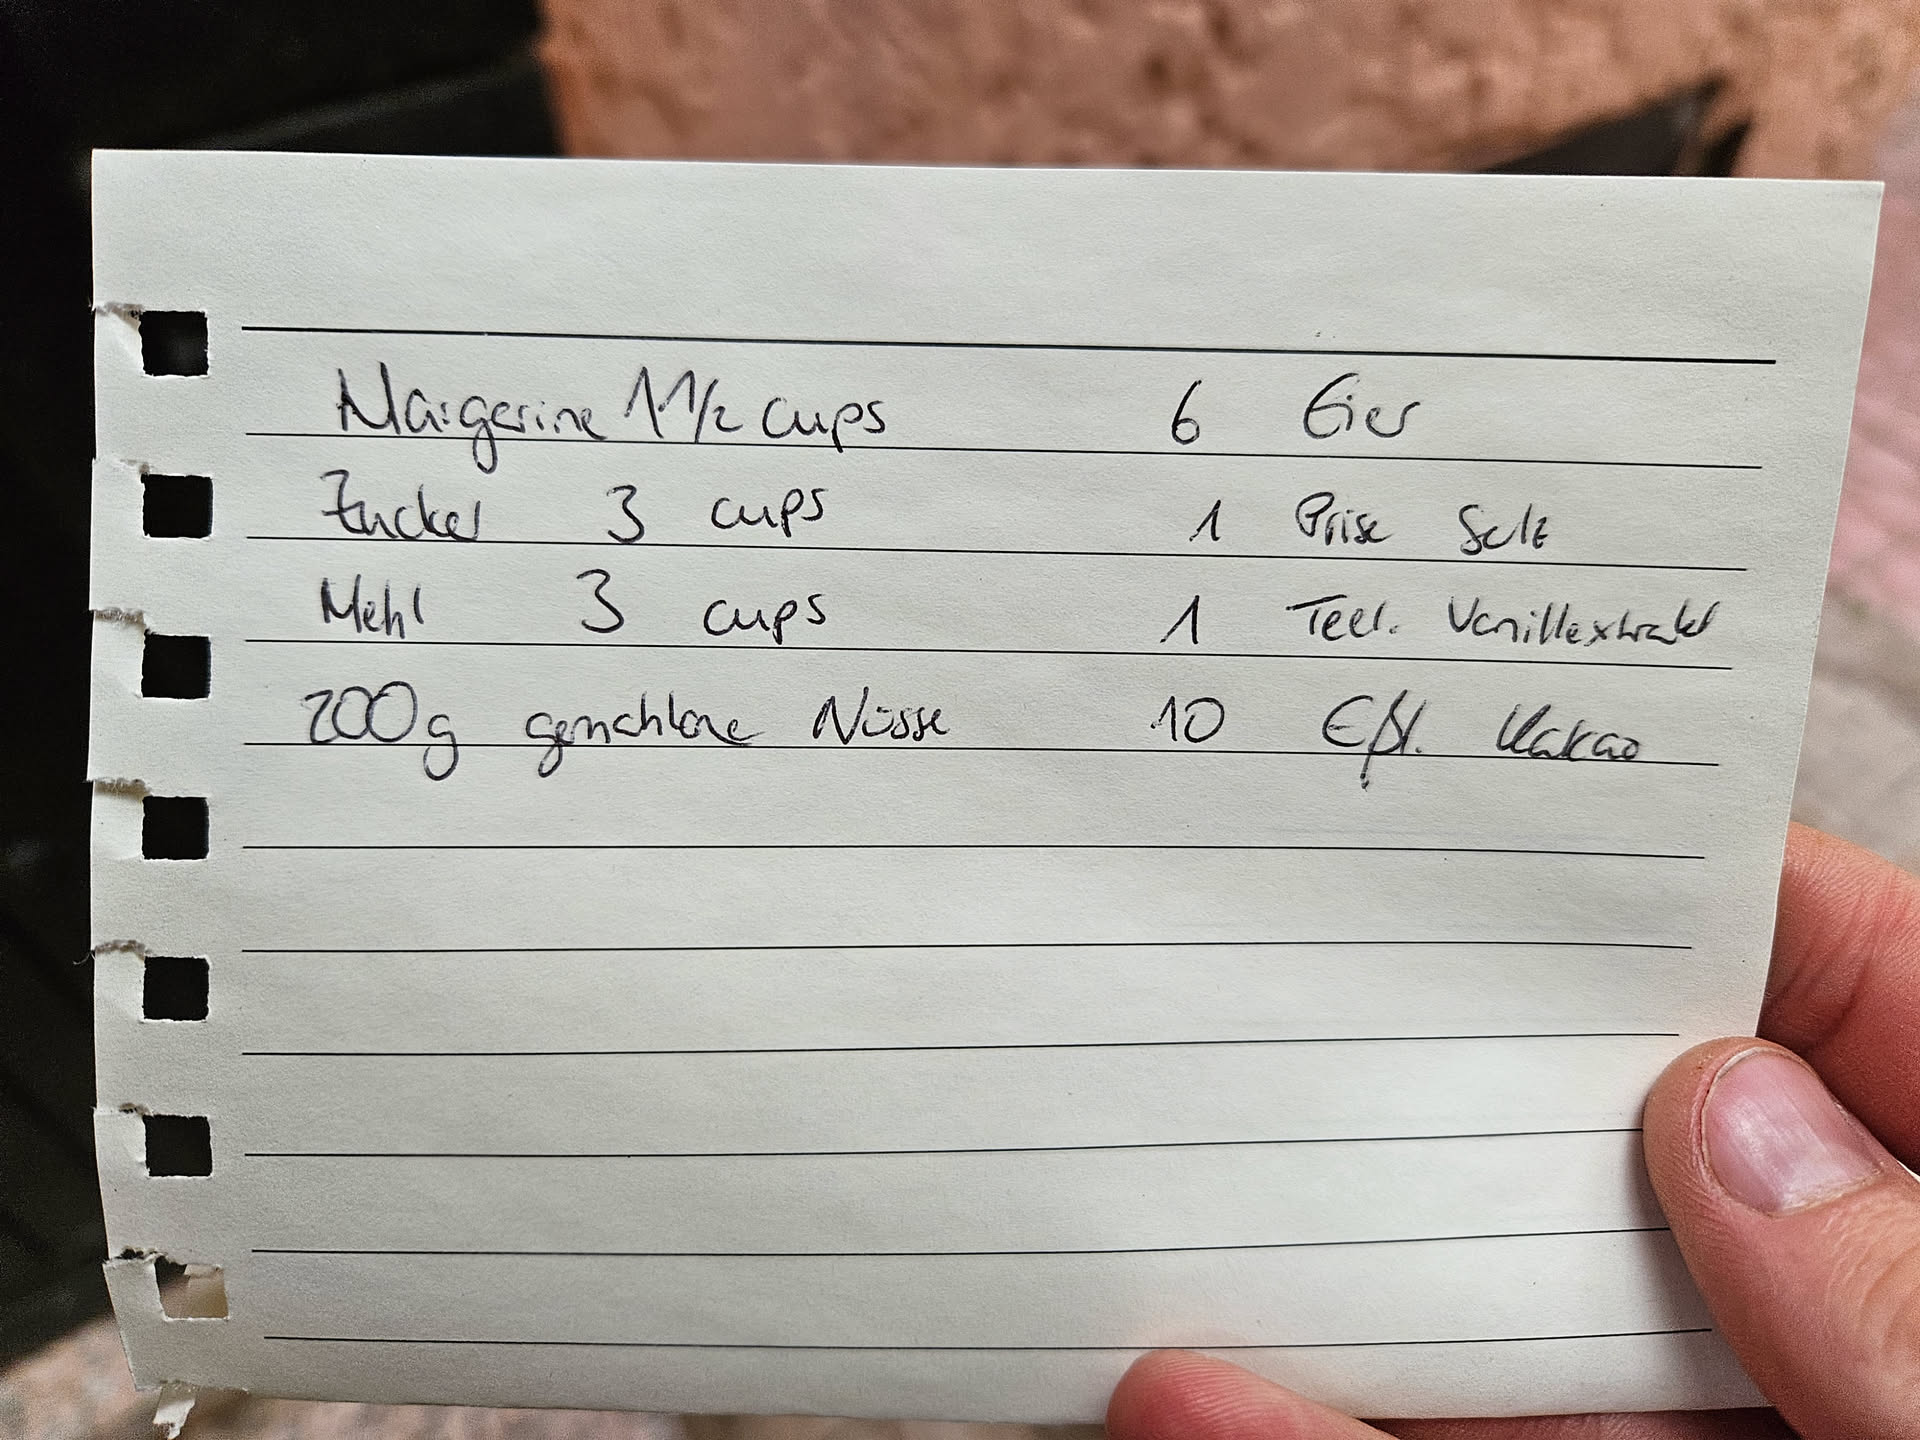 Margerine 1 1/2 cups 6 Eier
Zucker 3 cups 1 Prise Salz
Mehl 3 cups 1 Teel. Vanillextrakt
200g gemahlene Nüsse 10 Eßl. Kakao